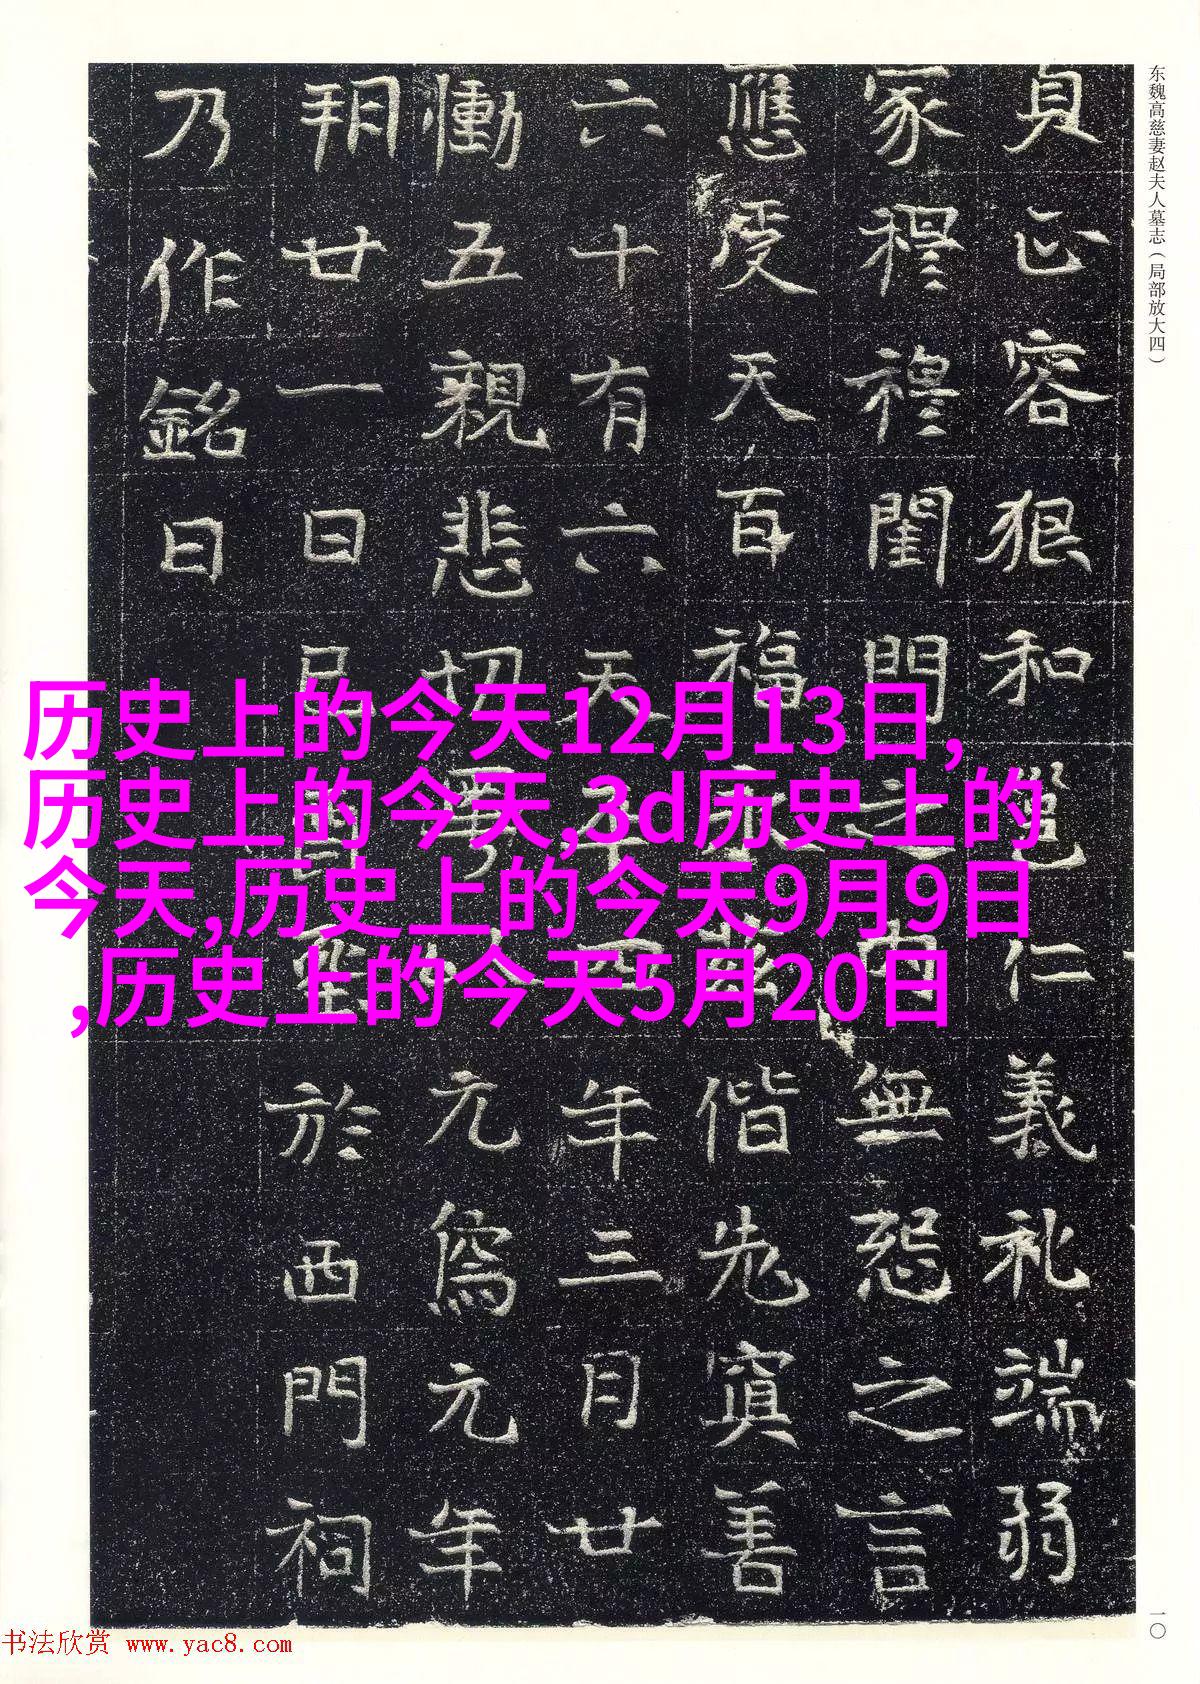 东魏高慈妻赵夫人墓志（局部放大四）
貞正容狠和邕仁義礼端弱
家穆穆閨門之内無怨之言
應受天百福永茲偕老寘善
六十有六天平四年三月廿
慟五親悲切元爲元年
朔廿一日於西門祠
乃作銘曰
历史上的今天12月13日,
历史上的今天,3d历史上的
今天,历史上的今天9月9日
,历史上的今天5月20日
一〇
书法欣赏 www.yac8.com